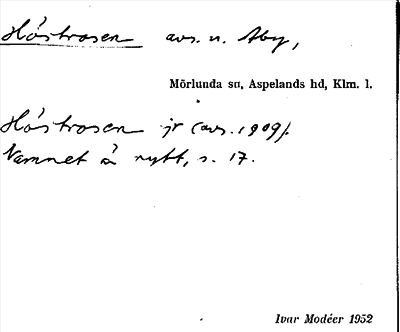 Höstrosen avs. u. Åby,
Mörlunda sn, Aspelands hd, Klm. l.
Höstrosen jr (avs. 1909).
Namnet å nytt, s. 17.
Ivar Modéer 1952